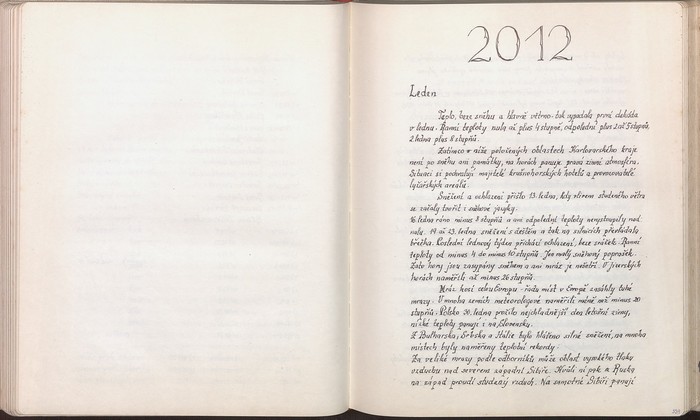 2012
Leden
Teplo, beze sněhu a hlavně větrno - tak vypadala první dekáda
v lednu. Ranní teploty nula až plus 4 stupně, odpolední plus 2 až 5 stupňů,
2. ledna plus 8 stupňů.
Zatímco v níže položených oblastech Karlovarského kraje
není po sněhu ani památky, na horách panuje pravá zimní atmosféra.
Situaci si pochvalují majitelé krušnohorských hotelů a provozovatelé
lyžařských areálů.
Sněžení a ochlazení přišlo 13. ledna, kdy vlivem studeného větru
se začaly tvořit i sněhové jazyky.
16. ledna ráno minus 8 stupňů a ani odpolední teploty nevystoupily nad
nulu. 19. až 23. ledna sněžení s deštěm a tak na silnicích převládala
břečka. Poslední lednový týden přichází ochlazení, beze srážek. Ranní
teploty od minus 4 do minus 10 stupňů. Jen malý sněhový poprašek.
Zato hory jsou zasypány sněhem a ani mráz je nešetří. V Jizerských
horách naměřili až minus 26 stupňů.
Mráz kosí celou Evropu - řadu míst v Evropě zasáhly tuhé
mrazy. V mnoha zemích meteorologové naměřili méně než minus 20
stupňů. Polsko 30. ledna prožilo nejchladnější den letošní zimy,
nízké teploty panují i na Slovensku.
Z Bulharska, Srbska a Itálie bylo hlášeno silné sněžení, na mnoha
místech byly naměřeny teplotní rekordy.
Za veliké mrazy podle odborníků může oblast vysokého tlaku
vzduchu nad severem západní Sibiře. Kvůli ní pak z Ruska
na západ proudí studený vzduch. Na samotné Sibiři panují